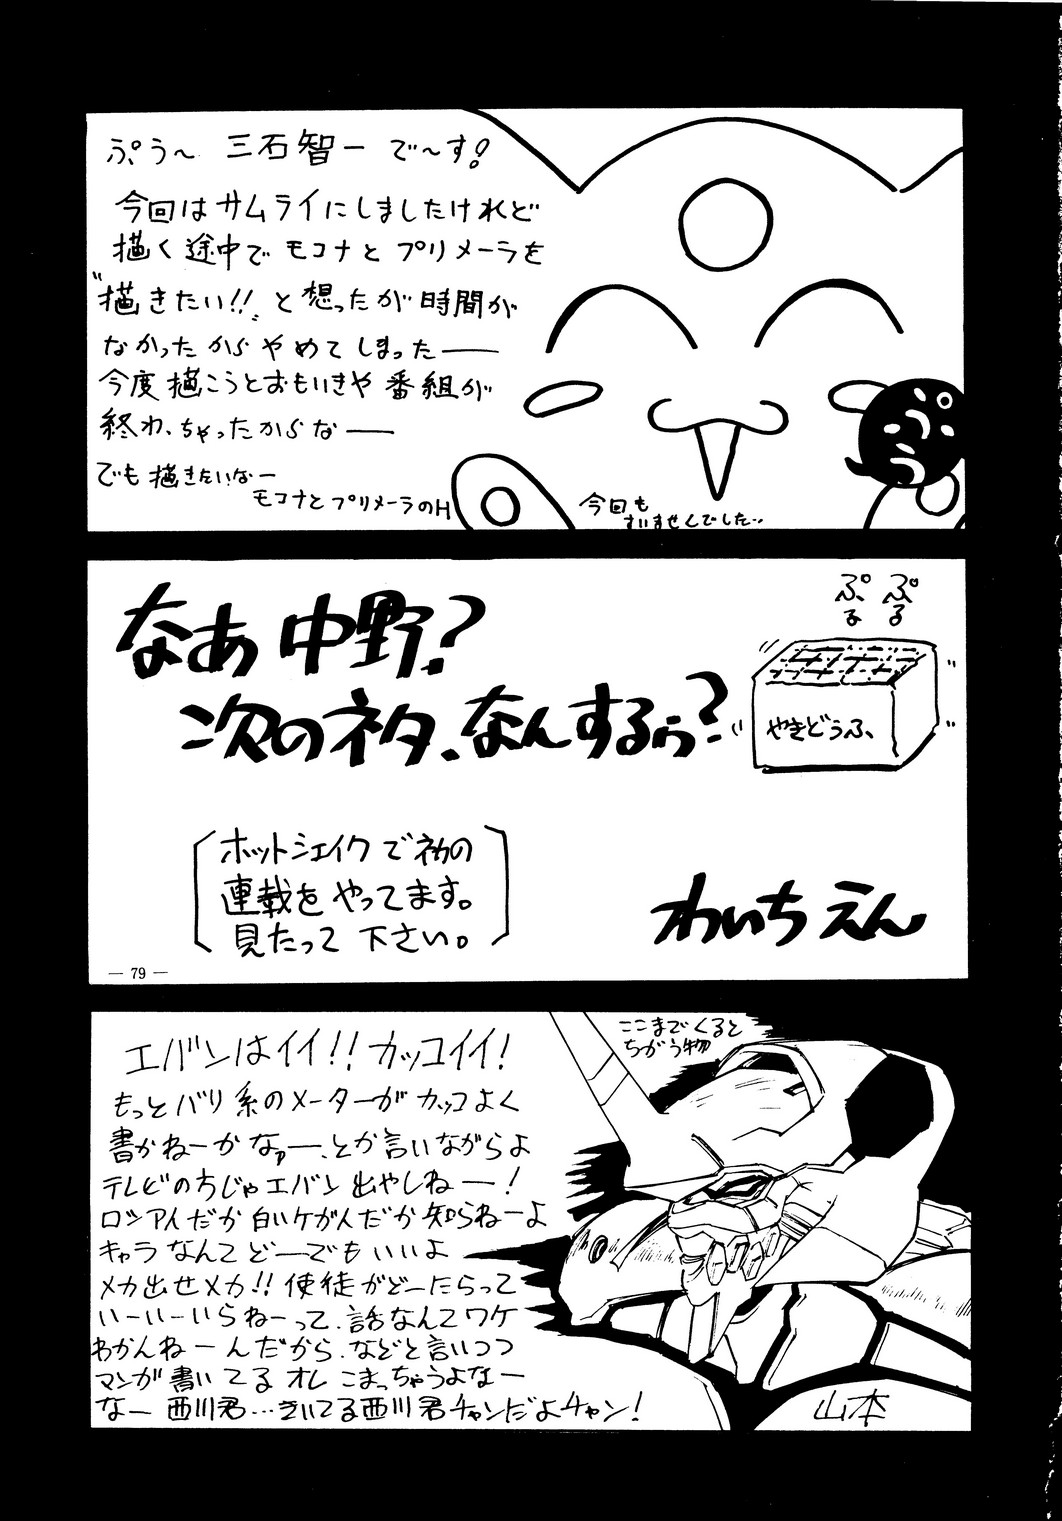 ぷう～ 三石智一 で～す!
今回はサムライにしましたけれど
描く途中でモコナとプリメーラを
"描きたい!!" と想ったが時間が
なかったからやめてしまった──
今度描こうとおもいきや番組が
終わっちゃったからな──
でも描きたいなー
モコナとプリメーラのH
今回も
すいませんでした..
なあ中野?
次のネタ、なんするぅ?
ぷる ぷる
やきどうふ
ホットシェイクで初の
連載をやってます。
見たって下さい。
わいちえん
— 79 —
エバンはイイ!! カッコイイ!
もっとバリ系のメーターがカッコよく
書かねーかなァー、とか言いながらよ
テレビのちじゃエバン出やしねー!
ロシア人だか白いケが人だか知らねーよ
キャラなんてどーでもいいよ
メカ出せメカ!! 使徒がどーたらって
いーいーいらねーって、話なんてワケ
わかんねーんだから、などと言いつつ
マンガ書いてるオレこまっちゃうよなー
なー 西川君…きいてる西川君チャンだよチャン!
ここまでくると
ちがう物
山本